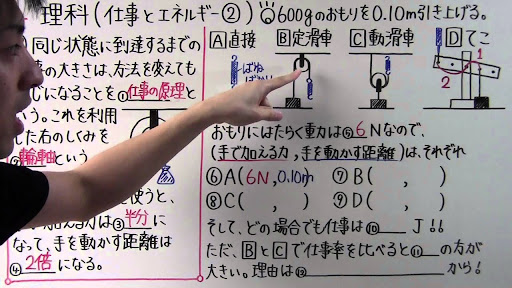 理科(仕事とエネルギー②) 600gのおもりを0.10m引き上げる。
同じ状態に到達するまでの
の大きさは、方法を変えても
じになることを①仕事の原理と
いう。これを利用
した右のしくみを
②輪軸という
を使うと、
加える力は③半分に
なって、手を動かす距離は
④2倍になる。
A直接 B定滑車 C動滑車 Dてこ
ばね
ばかり
1
2
おもりにはたらく重力は⑤6Nなので、
(手で加える力,手を動かす距離)は、それぞれ
⑥A(6N,0.10m) ⑦B( , )
⑧C( , ) ⑨D( , )
そして、どの場合でも仕事は⑩ J!!
ただ、BとCで仕事率を比べると⑪ の方が
大きい。理由は⑫ から!